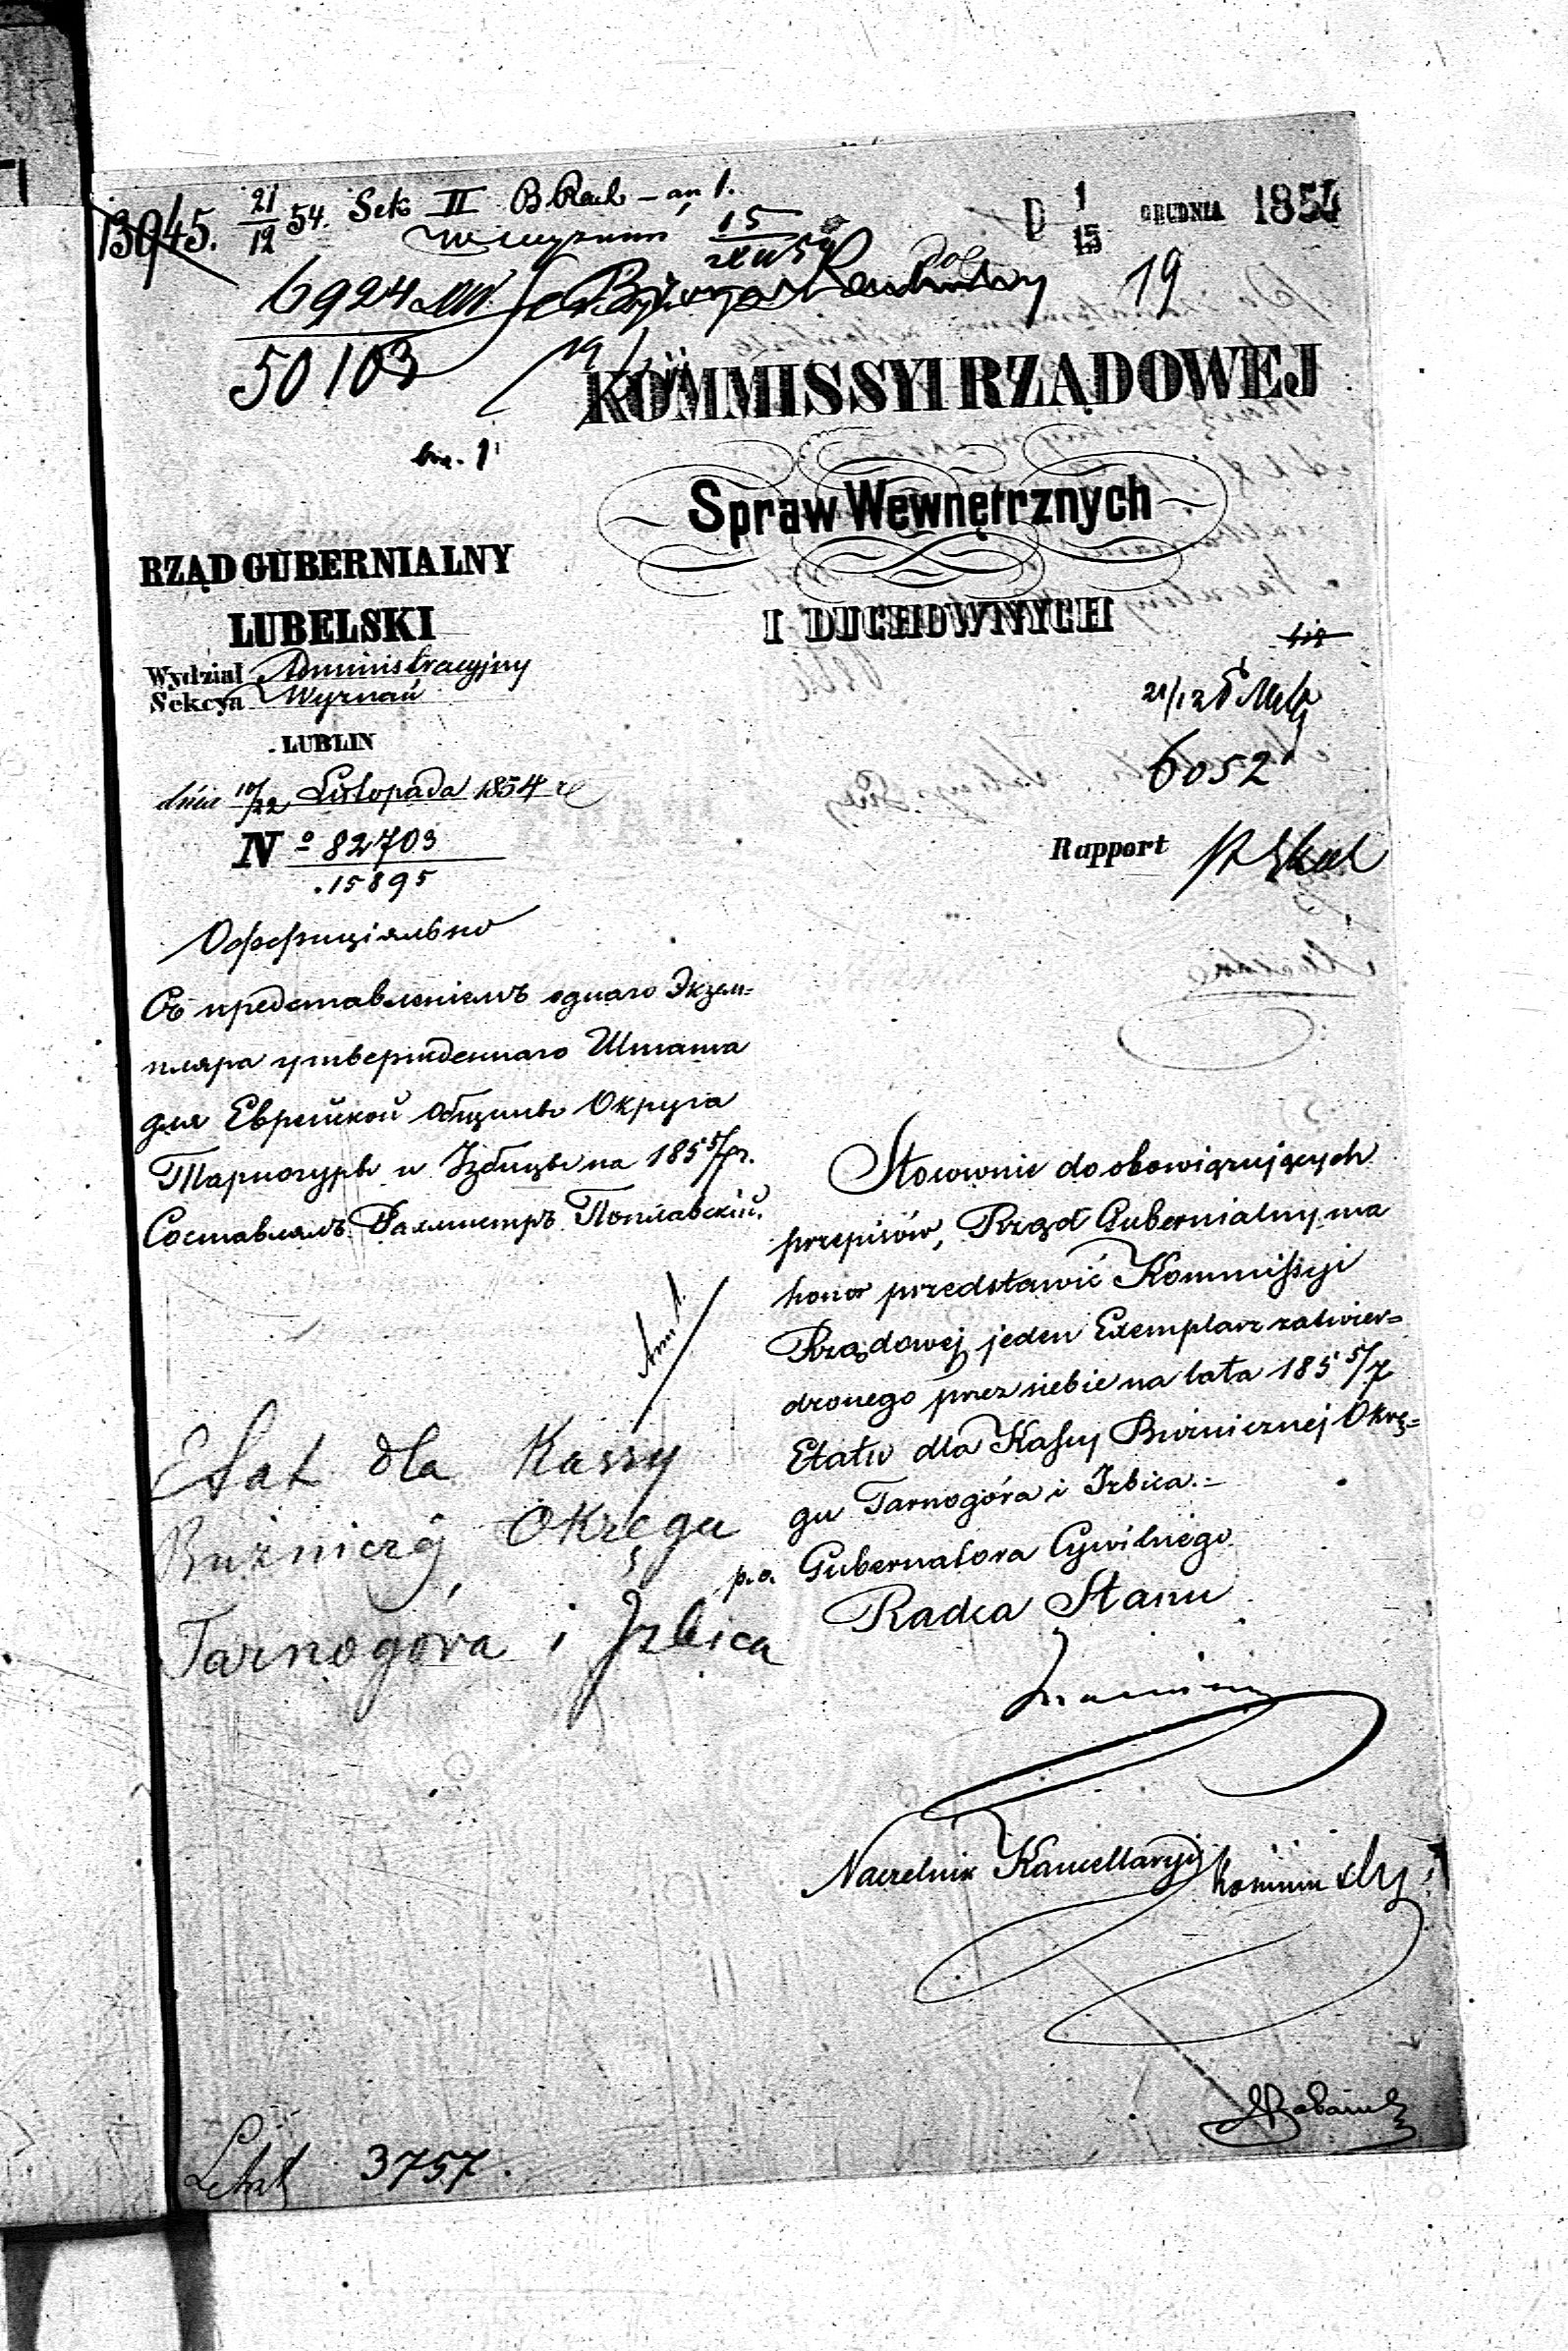 13045. 21/12 54. Sek II B Rach - an 1.
15/XII 54
D 1/13 GRUDNIA 1854
6924
50103
19
KOMMISSYI RZĄDOWEJ
Spraw Wewnętrznych
I DUCHOWNYCH
RZĄD GUBERNIALNY
LUBELSKI
Wydział Administracyjny
Sekcya Wyznań
LUBLIN
dnia 10/22 Listopada 1854 r
No 82703
15895
21/12
6052
Rapport
Оффиціяльно
Съ представленіемъ однаго Экзем-
пляра утвержденнаго Штата
для Еврейской Общины Округа
Тарногура и Избица на 185 5/7 г.
Составлялъ Поплавскій.
Ann 1.
Stosownie do obowiązujących
przepisów, Rząd Gubernialny ma
honor przedstawić Kommissyi
Rządowej jeden Exemplarz zatwier=
dzonego przez siebie na lata 185 5/7
Etatu dla Kassy Bużnicznej Okrę=
gu Tarnogóra i Izbica.-
p.o. Gubernatora Cywilnego
Radca Stanu
Etat dla Kassy
Bużniczéj Okręgu
Tarnogóra i Izbica
Naczelnik Kancellaryi
3757.